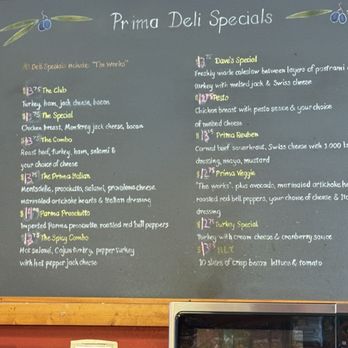 Prima Deli Specials
All Deli Specials include: "The Works"
The Club
Turkey, ham, jack cheese, bacon
The Special
Chicken breast, Monterey jack cheese, bacon
The Combo
Roast beef, turkey, ham, salami &
your choice of cheese
The Prima Italian
Mortadella, prosciutto, salami, provolone cheese
marinated artichoke hearts & Italian dressing
Parma Prosciutto
Imported Parma prosciutto, roasted red bell peppers
The Spicy Combo
Hot salami, Cajun turkey, pepper turkey
with hot pepper jack cheese
Dave's Special
Freshly made coleslaw between layers of pastrami
turkey with melted jack & Swiss cheese
Pesto
Chicken breast with pesto sauce & your choice
of melted cheese
Prima Reuben
Corned beef, sauerkraut, Swiss cheese with 1000
dressing, mayo, mustard
Prima Veggie
"The works", plus avocado, marinated artichoke
roasted red bell peppers, your choice of cheese &
dressing
Turkey Special
Turkey with cream cheese & cranberry sauce
BLT
10 slices of crisp bacon lettuce & tomato